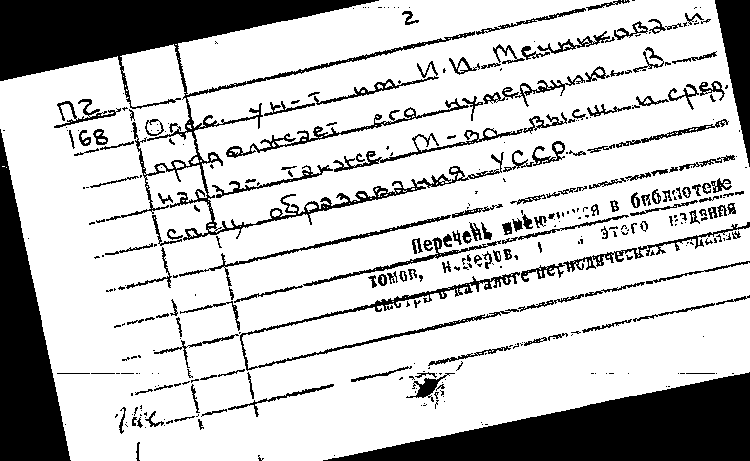 2
П2
168
Одес. ун-т им. И.И. Мечникова и
продолжает его нумерацию. В
надзаг. также: М-во высш. и сред.
спец. образования УССР.
Перечень имеющихся в библиотеке
томов, номеров, этого издания
смотри в каталоге периодических изданий